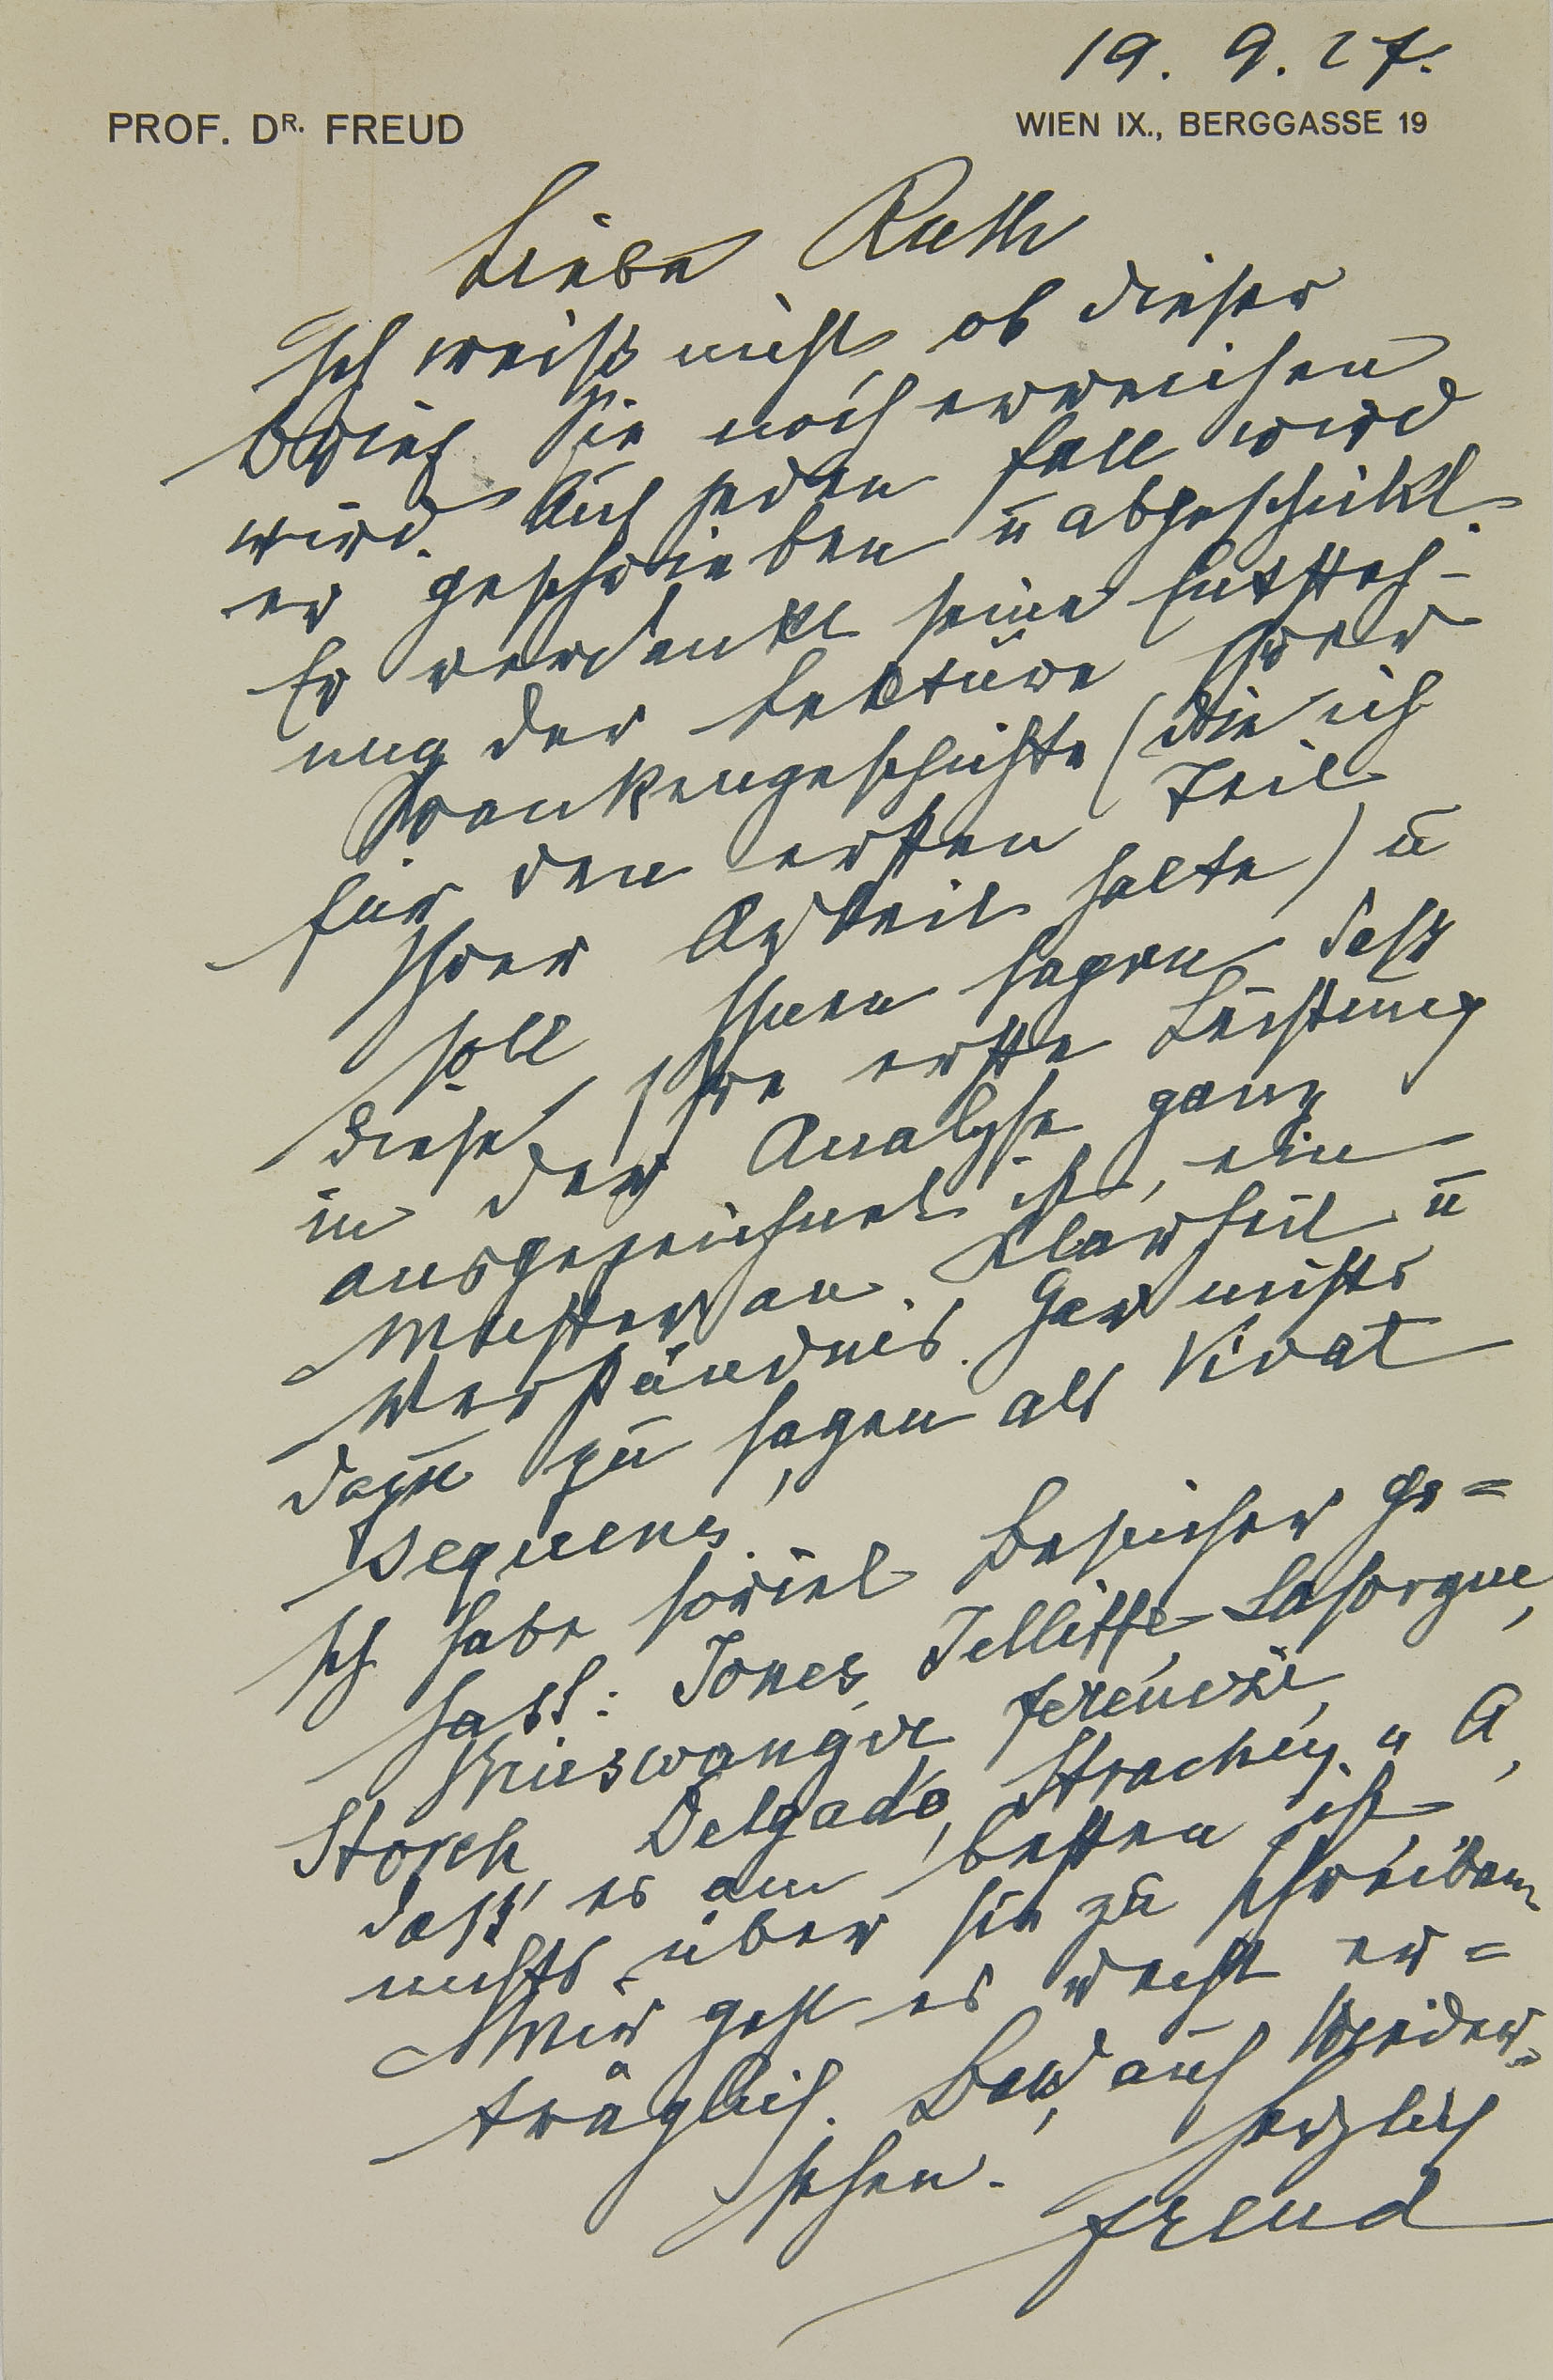 19. 9. 27.
PROF. DR. FREUD
WIEN IX., BERGGASSE 19
Liebe Ruth
Ich weiß nicht ob dieser
Brief Sie noch erreichen
wird. Auf jeden Fall wird
er geschrieben u abgeschickt.
Er verdankt seine Entsteh-
ung der Lektüre Ihrer
Krankengeschichte (die ich
für den ersten Teil
Ihrer Arbeit halte) u
soll Ihnen sagen daß
diese Ihre erste Leistung
in der Analyse ganz
ausgezeichnet ist, ein
Muster an Klarheit u
Verständnis. Gar nichts
dazu zu sagen als Vivat
sequens.
Ich habe soviel Besucher ge=
habt: Jones, Jelliffe, Laforgue,
Binswanger, Ferenczi,
Storch, Delgado, Strachey u A,
daß es am besten ist,
nichts über sie zu schreiben.
Mir geht es recht er=
träglich. Bald auf Wieder=
sehen.
Herzlich
Freud